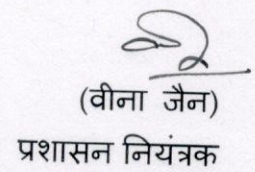 (वीना जैन)
प्रशासन नियंत्रक